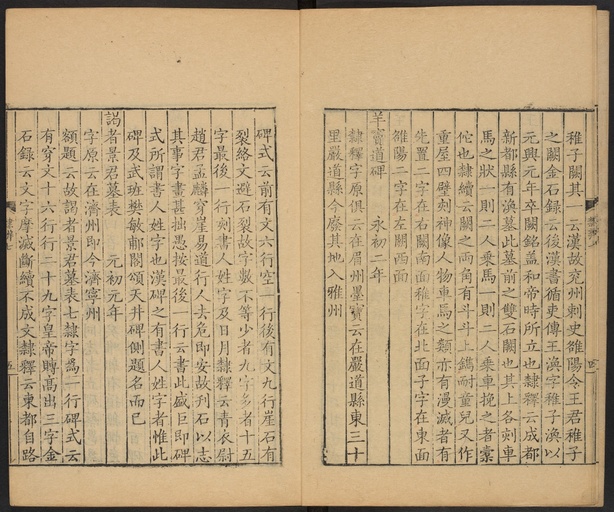 稚子闕其一云漢故兗州刺史雒陽令王君稚子
之闕金石錄云後漢書循吏傳王渙字稚子渙以
元興元年卒闕銘蓋和帝時所立也隸釋云成都
新都縣有渙墓此墓前之雙石闕也其上各刻車
馬之狀一則二人乘馬一則二人乘車挽之者橐
佗也隸續云闕之兩角有斗斗上鐫耐童兒又作
重屋四壁刺神像人物車馬之類亦有漫滅者有
先置二字在右闕南面稚字在北面子字在東面
雒陽二字在左闕西面
羊竇道碑 永初二年
隸釋字原俱云在眉州墨寶云在嚴道縣東三十
里嚴道縣今廢其地入雅州
碑式云前有文六行空一行後有文九行崖石有
裂絡文避石裂故字數不等少者九字多者十五
字最後一行刻書人姓字及日月隸釋云青衣尉
趙君孟麟穿崖易道行人去危即安故刊石以志
其事字書甚拙愚按最後一行云書此盛巨即碑
式所謂書人姓字也漢碑之有書人姓字者惟此
碑及武班樊敏郙閣頌天井碑側題名而已
謁者景君墓表 元初元年
字原云在濟州即今濟寧州
額題云故謁者景君墓表七隸字為一行碑式云
有穿文十六行行二十九字皇帝賻高出三字金
石錄云文字摩滅斷續不成文隸釋云東都自路